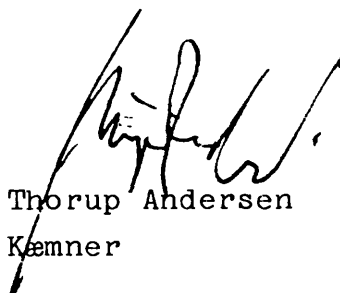 Thorup Andersen
Kæmner